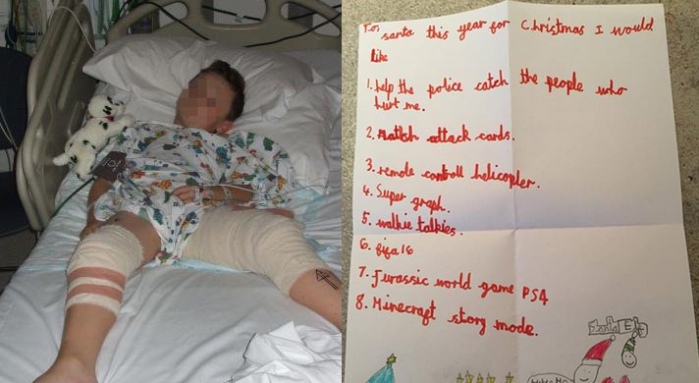 santa this year for Christmas I would
like
1. help the police catch the people who
hurt me.
2. Match attack cards.
3. remote controll helicopter.
4. Super graph.
5. walkie talkies.
6. fifa 16
7. Jurassic world game PS4
8. Minecraft story mode.